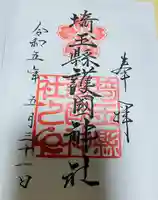 奉拝
埼玉縣護國神社
令和五年五月三十一日
埼玉縣
社之印